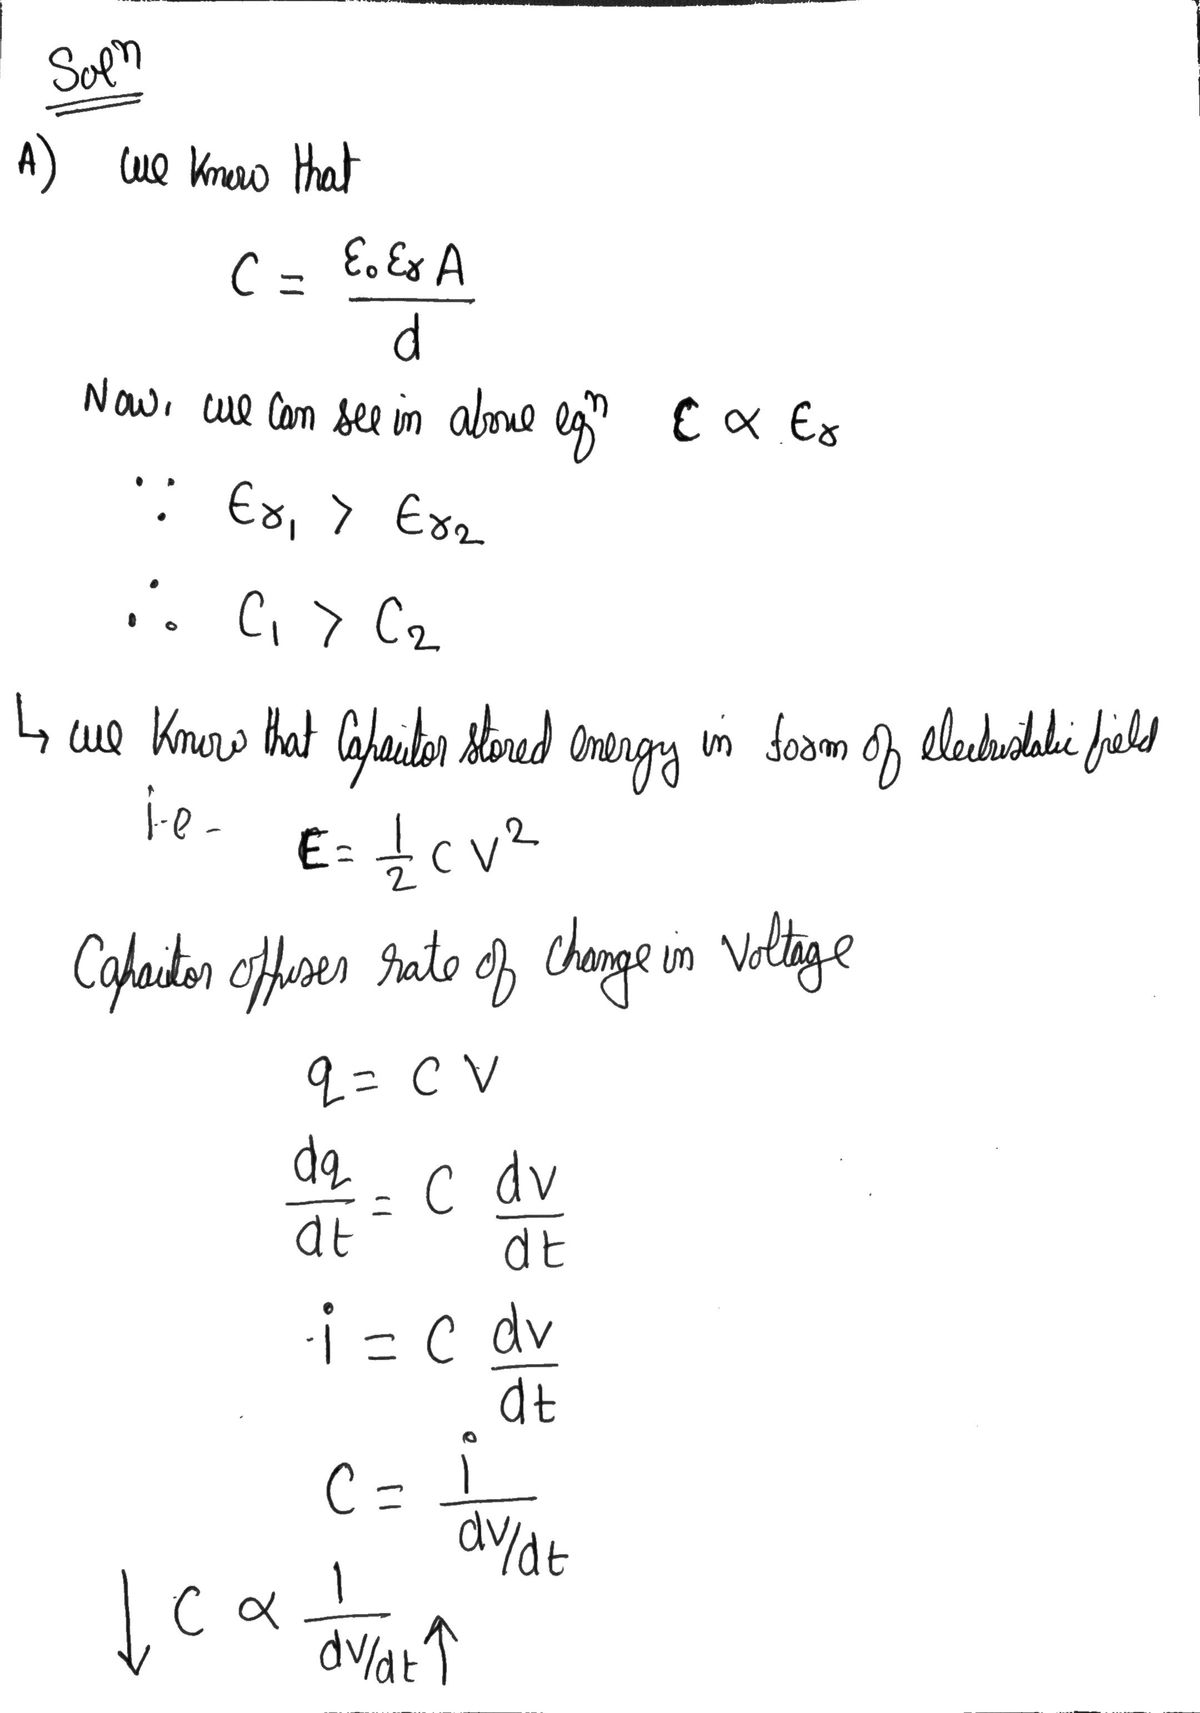 Solⁿ
A) we know that
C = ε₀ εr A / d
Now, we can see in above eqⁿ C ∝ εr
∵ εr₁ > εr₂
∴ C₁ > C₂
↳ we know that Capacitor stored energy in form of electrostatic field
i.e - E = 1/2 C V²
Capacitor opposes rate of change in voltage
q = C V
dq/dt = C dv/dt
i = C dv/dt
C = i / dv/dt
↓ C ∝ 1 / dv/dt ↑